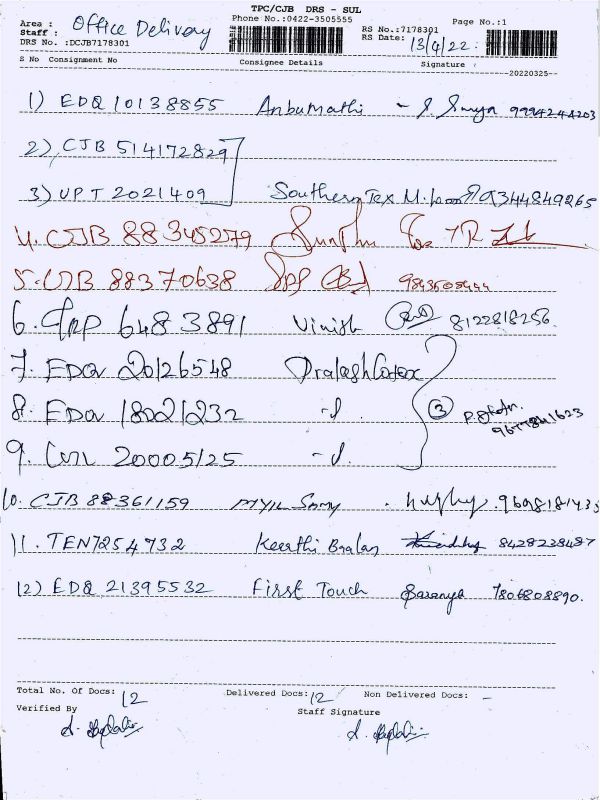 TPC/CJB DRS - SUL
Phone No.:0422-3505555
Page No.:1
Area : Office Delivery
Staff :
DRS No. :DCJB7178301
RS No.:7178301
RS Date: 13/4/22
S No Consignment No Consignee Details Signature
20220325
1) EDQ 10138855 Anbumathi - S. Surya 9994244203
2) CJB 514172829
3) UPT 2021409 Southern Tex 9344849265
4. CJB 88345279
5. CJB 88370638 9843508444
6. 6483891 Vinish 8122818256
7. EDQ 20126548 Prakash Cotex
8. EDQ 18021232 -"-
3
9677841623
9. 20005125 -"-
10. CJB 88361159 MYIL Samy 9609181435
11. TEN7254732 Keerthi Baalan 8428228487
12) EDQ 21395532 First Touch Saranya 7806808890.
Total No. Of Docs: 12 Delivered Docs: 12 Non Delivered Docs: -
Verified By Staff Signature